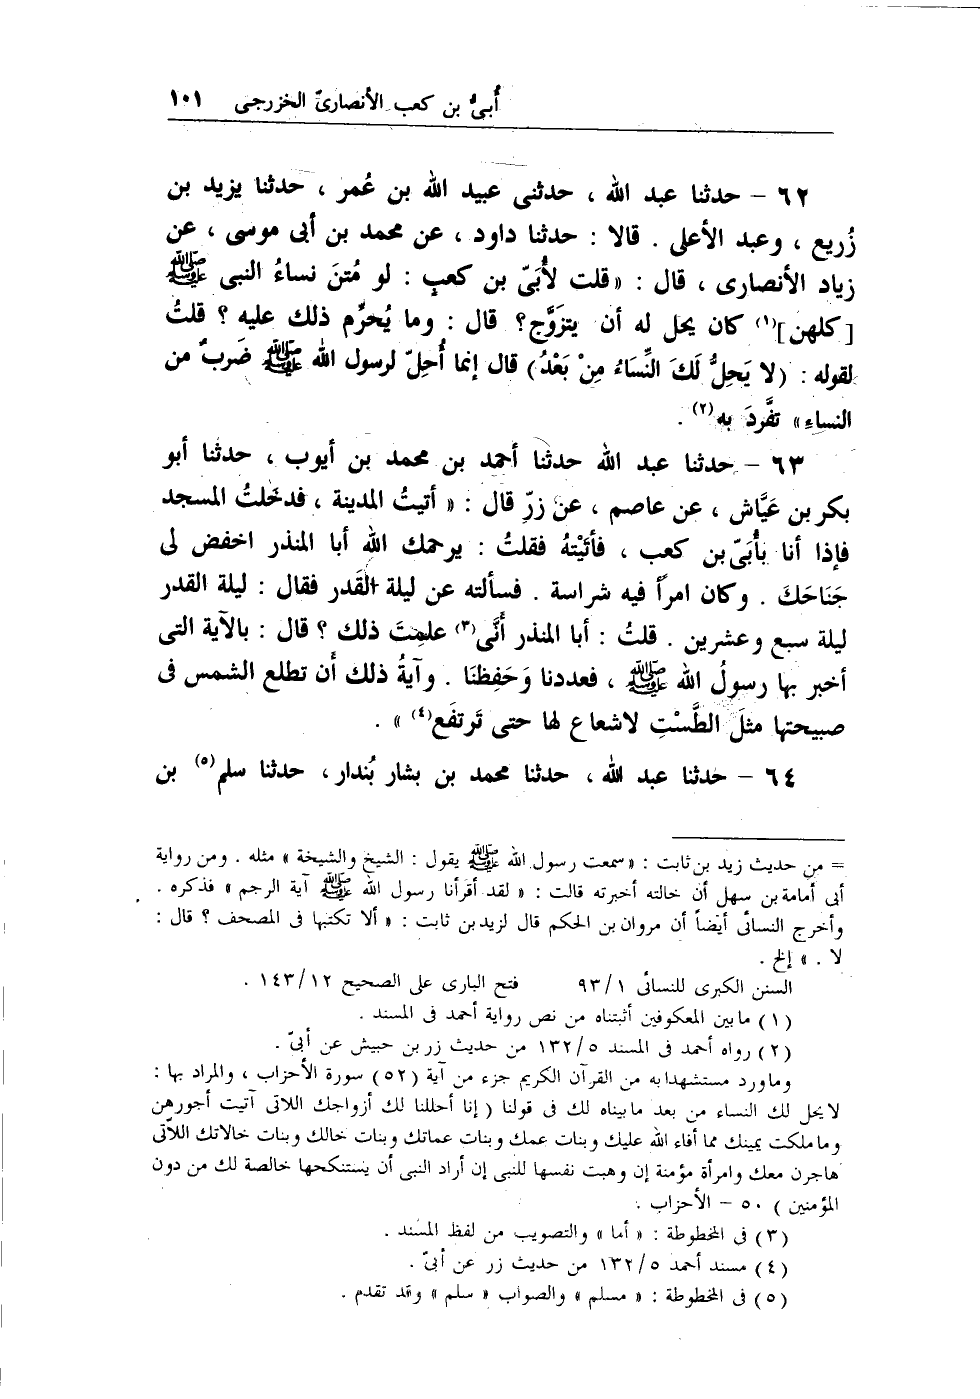 أُبىُّ بن كعب الأنصارىّ الخزرجى ١٠١
٦٢ – حدثنا عبد الله ، حدثنى عبيد الله بن عُمر ، حدثنا يزيد بن
زُريع ، وعبد الأعلى . قالا : حدثنا داود ، عن محمد بن أبى موسى ، عن
زياد الأنصارى ، قال : « قلت لأُبَىّ بن كعبٍ : لو مُتنَ نساءُ النبى ﷺ
[كلهن](١) كان يحل له أن يتزوَّج؟ قال : وما يُحرِّم ذلك عليه ؟ قلتُ
لقوله : (لا يَحِلُّ لَكَ النِّسَاءُ مِنْ بَعْدُ) قال إنما أُحِلّ لرسول الله ﷺ ضَربٌ من
النساءِ» تفَّردَ به(٢) .
٦٣ – حدثنا عبد الله حدثنا أحمد بن محمد بن أيوب ، حدثنا أبو
بكر بن عَيَّاش ، عن عاصم ، عن زرّ قال : « أتيتُ المدينة ، فدخَلتُ المسجد
فإذا أنا بأُبَىّ بن كعب ، فأتَيْتهُ فقلتُ : يرحمك الله أبا المنذر اخفض لى
جَنَاحَكَ . وكان امرأً فيه شراسة . فسألته عن ليلة القَدر فقال : ليلة القدر
ليلة سبع وعشرين . قلتُ : أبا المنذر أنَّى(٣) علمِتَ ذلك ؟ قال : بالآية التى
أخبر بها رسولُ الله ﷺ ، فعددنا وَحَفِظنَا . وآيةُ ذلك أن تطلع الشمس فى
صبيحتها مثلَ الطَّسْتِ لاشعاع لها حتى تَرتفَع(٤) » .
٦٤ – حدثنا عبد الله ، حدثنا محمد بن بشار بُندار، حدثنا سلم(٥) بن
= من حديث زيد بن ثابت : «سمعت رسول الله ﷺ يقول : الشيخ والشيخة » مثله . ومن رواية
أبى أمامة بن سهل أن خالته أخبرته قالت : « لقد أقرأنا رسول الله ﷺ آية الرجم » فذكره .
وأخرج النسائى أيضاً أن مروان بن الحكم قال لزيد بن ثابت : « ألا تكتبها فى المصحف ؟ قال :
لا . » إلخ .
السنن الكبرى للنسائى ٩٣/١ فتح البارى على الصحيح ١٤٣/١٢ .
(١) مابين المعكوفين أثبتناه من نص رواية أحمد فى المسند .
(٢) رواه أحمد فى المسند ١٣٢/٥ من حديث زر بن حبيش عن أبىّ .
وماورد مستشهدا به من القرآن الكريم جزء من آية (٥٢) سورة الأحزاب ، والمراد بها :
لايحل لك النساء من بعد مابيناه لك فى قولنا ( إنا أحللنا لك أزواجك اللاتى آتيت أجورهن
وماملكت يمينك مما أفاء الله عليك وبنات عمك وبنات عماتك وبنات خالك وبنات خالاتك اللاّتى
هاجرن معك وامرأة مؤمنة إن وهبت نفسها للنبى إن أراد النبى أن يستنكحها خالصة لك من دون
المؤمنين ) ٥٠ – الأحزاب .
(٣) فى المخطوطة : « أما » والتصويب من لفظ المسند .
(٤) مسند أحمد ١٣٢/٥ من حديث زر عن أبىّ .
(٥) فى المخطوطة : « مسلم » والصواب « سلم » وقد تقدم .